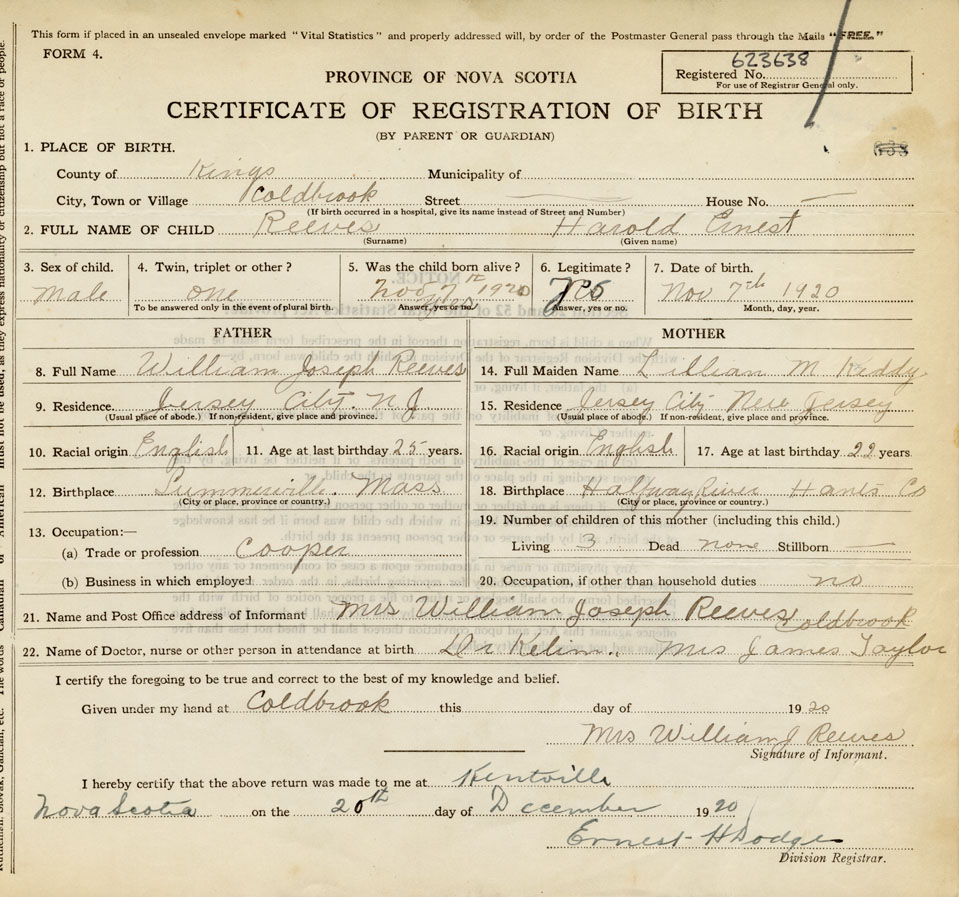 This form if placed in an unsealed envelope marked "Vital Statistics" and properly addressed will, by order of the Postmaster General pass through the Mails "FREE."
FORM 4.
623638
Registered No.
For use of Registrar General only.
PROVINCE OF NOVA SCOTIA
CERTIFICATE OF REGISTRATION OF BIRTH
(BY PARENT OR GUARDIAN)
1. PLACE OF BIRTH.
County of Kings Municipality of
City, Town or Village Coldbrook Street House No.
(If birth occurred in a hospital, give its name instead of Street and Number)
2. FULL NAME OF CHILD Reeves Harold Ernest
(Surname) (Given name)
3. Sex of child. 4. Twin, triplet or other? 5. Was the child born alive? 6. Legitimate? 7. Date of birth.
Male one Nov 7th 1920 yes Yes Nov 7th 1920
To be answered only in the event of plural birth. Answer, yes or no. Answer, yes or no. Month, day, year.
FATHER MOTHER
8. Full Name William Joseph Reeves 14. Full Maiden Name Lillian M Kiddy
9. Residence Jersey City. N J 15. Residence Jersey City New Jersey
(Usual place of abode.) If non-resident, give place and province. (Usual place of abode.) If non-resident, give place and province.
10. Racial origin English 11. Age at last birthday 25 years. 16. Racial origin English 17. Age at last birthday 22 years
12. Birthplace Summerville. Mass 18. Birthplace Halfway River Hants Co
(City or place, province or country.) (City or place, province or country.)
13. Occupation:— 19. Number of children of this mother (including this child.)
(a) Trade or profession Cooper Living 3 Dead none Stillborn
(b) Business in which employed 20. Occupation, if other than household duties no
21. Name and Post Office address of Informant Mrs William Joseph Reeves Coldbrook
22. Name of Doctor, nurse or other person in attendance at birth Dr Mrs James Taylor
I certify the foregoing to be true and correct to the best of my knowledge and belief.
Given under my hand at Coldbrook this day of 1920
Mrs William J Reeves
Signature of Informant.
I hereby certify that the above return was made to me at Kentville
Nova Scotia on the 20th day of December 1920
Ernest H Dodge
Division Registrar.